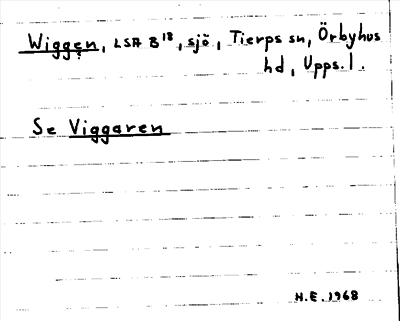 Wiggen, LSA B¹⁸, sjö, Tierps sn, Örbyhus
hd, Upps. l.
Se Viggaren
H.E. 1968